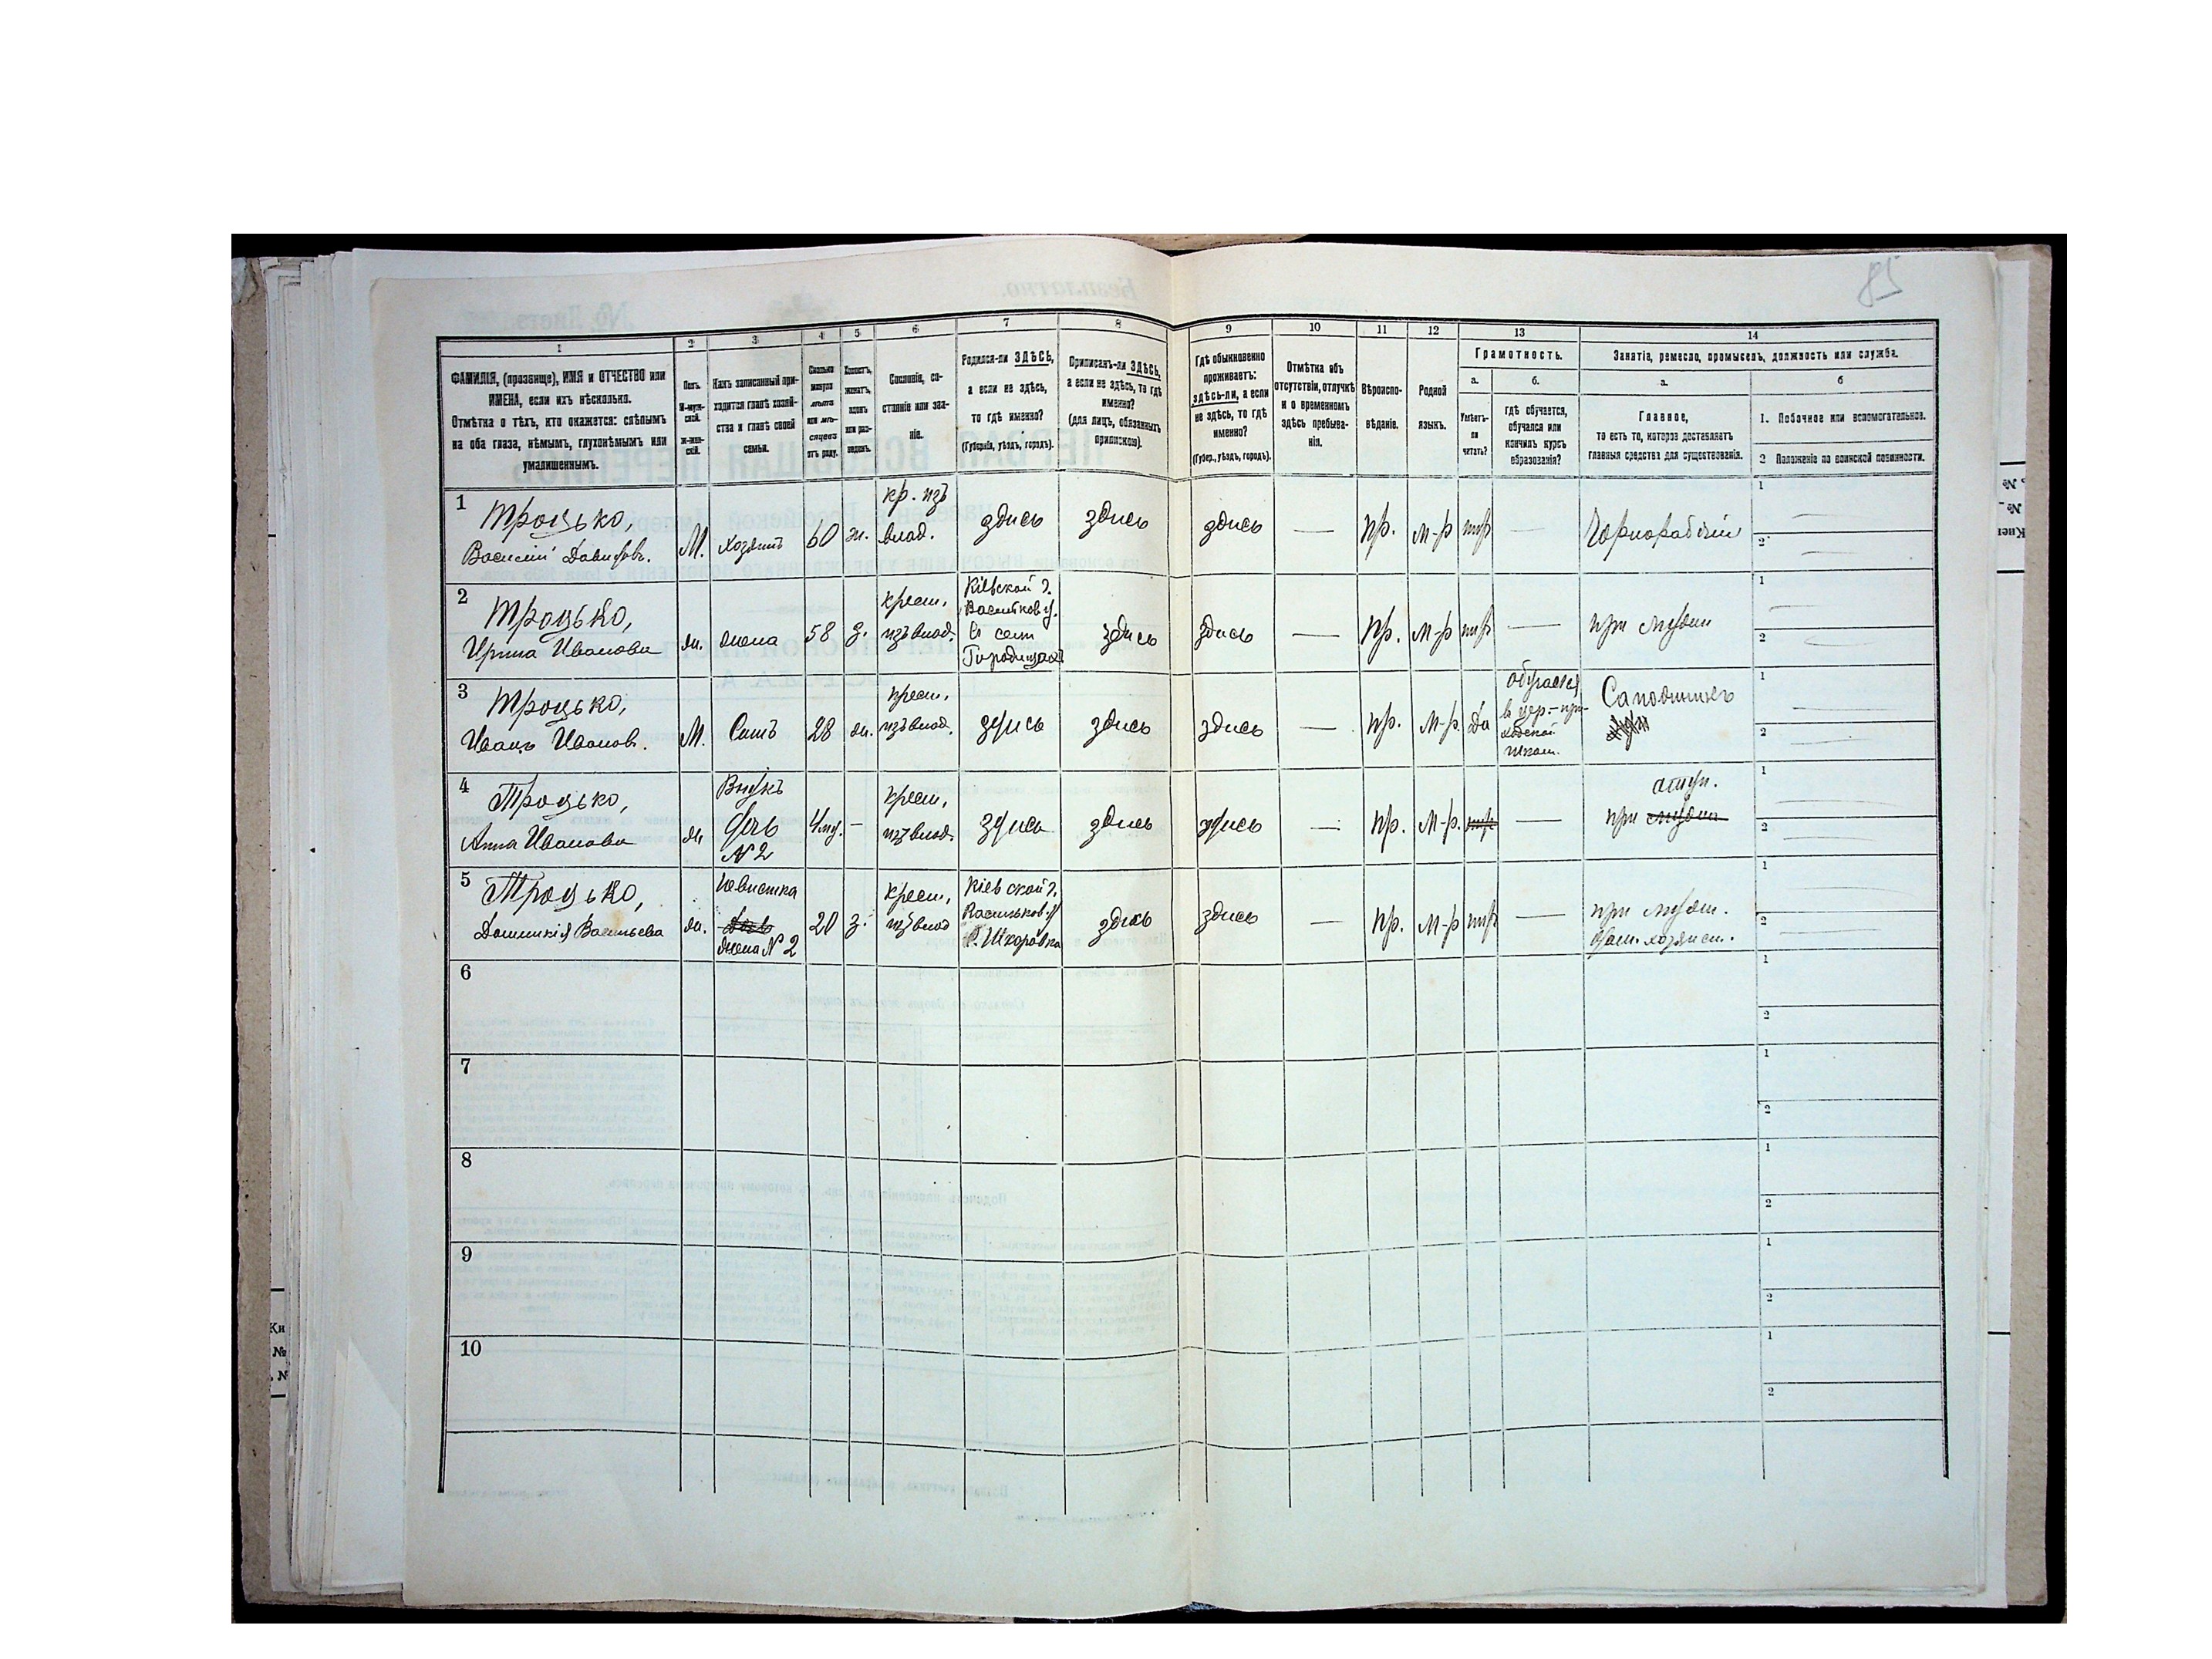 85
1
2
3
4
5
6
7
8
9
10
11
12
13
14
ФАМИЛІЯ, (прозвище), ИМЯ и ОТЧЕСТВО или
ИМЕНА, если ихъ нѣсколько.
Отмѣтка о тѣхъ, кто окажется: слѣпымъ
на оба глаза, нѣмымъ, глухонѣмымъ или
умалишеннымъ.
Полъ.
М-муж-
ской.
Ж-жен-
скій.
Какъ записанный при-
ходится главѣ хозяй-
ства и главѣ своей
семьи.
Сколько
минуло
лѣтъ
или мѣ-
сяцевъ
отъ роду.
Холостъ,
женатъ,
вдовъ
или раз-
веденъ.
Сословіе, со-
стояніе или зва-
ніе.
Родился-ли ЗДѢСЬ,
а если не здѣсь,
то гдѣ именно?
(Губернія, уѣздъ, городъ).
Приписанъ-ли ЗДѢСЬ,
а если не здѣсь, то гдѣ
именно?
(для лицъ, обязанныхъ
припискою).
Гдѣ обыкновенно
проживаетъ:
здѣсь-ли, а если
не здѣсь, то гдѣ
именно?
(Губер., уѣздъ, городъ).
Отмѣтка объ
отсутствіи, отлучкѣ
и о временномъ
здѣсь пребыва-
ніи.
Вѣроиспо-
вѣданіе.
Родной
языкъ.
Грамотность.
а.
б.
Умѣетъ-
ли
читать?
гдѣ обучается,
обучался или
кончилъ курсъ
образованія?
Занятіе, ремесло, промыселъ, должность или служба.
а.
б
Главное,
то есть то, которое доставляетъ
главныя средства для существованія.
1. Побочное или вспомогательное.
2 Положеніе по воинской повинности.
1
Троцько,
Василій Давидовъ.
М.
хозяинъ
60
ж.
кр. изъ
влад.
здись
здись
здись
—
пр.
м-р
—
Чернорабочій
1
2
2
Троцько,
Ирина Иванова
ж.
жена
58
з.
крест.
изъ влад.
Кіевской г.
Васильков. у.
в сели
Городищахъ
здись
здись
—
пр.
м-р
—
при мужи
1
2
3
Троцько,
Иванъ Иванов.
М.
Сынъ
28
ж.
крест.
изъ влад.
здись
здись
здись
—
пр.
м-р.
да
обучался
в цер.-при-
ходской
школ.
Сапожникъ
1
2
4
Троцько,
Анна Иванова
ж
Внукъ
дочь
№2
4 мѣ.
—
крест.
изъ влад.
здись
здись
здись
—
пр.
м-р.
—
отцу.
при мужи
1
2
5
Троцько,
Васильева
ж.
Невистка
жена №2
20
з.
крест.
изъ влад
Кіевской г.
Васильков. у
с. Шкаровка
здись
здись
—
пр.
м-р
—
при муж.
дом. хозяйст.
1
2
6
1
2
7
1
2
8
1
2
9
1
2
10
1
2